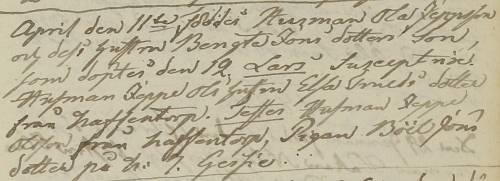 April den 11te föddes Husman Ola Jeppsson
och dess Hustru Bengta Jöns dotters Son,
som döptes den 12 Lars. Suscept
Husman Jeppe Ols Hustru Elsa dotter
från Haffentorp. Testes Husman Jeppe
Olsson från Haffentorp, Pigan Böel Jöns
dotter på